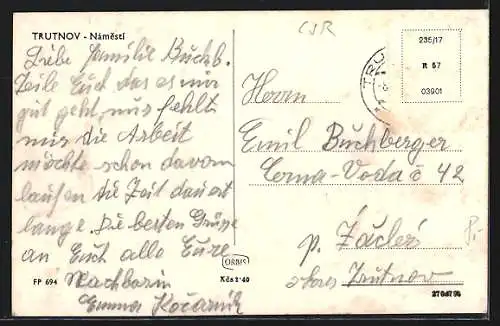 TRUTNOV - Náměstí
Liebe Familie Buchb.
Teile Euch das es mir
gut geht, nur fehlt
mir die Arbeit
möchte schon davon
laufen die Zeit dauert
lange. Die besten Grüsse
an Euch alle Eure
Nachbarin
Emma Kočarnik
FP 694
ORBIS
Kčs 1·40
ČSR
TRU
235/17
R 57
03901
Herrn
Emil Buchberger
Cerna-Voda č 42
p. Žacleř
okres Trutnov